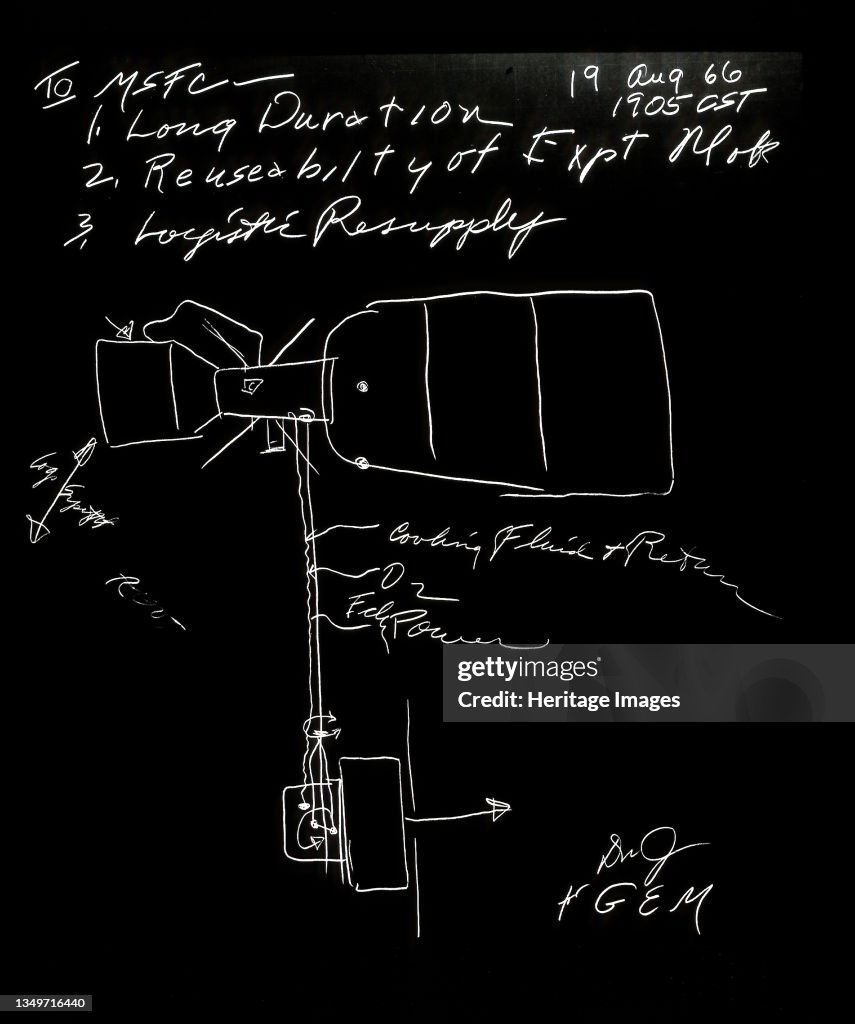 TO MSFC — 19 Aug 66
1905 CST
1. Long Duration
2. Reuseabilty of Expt Mod
3, Logistic Resupply
C
Log.
Cooling Fluid + Return
O2
Power
gettyimages®
Credit: Heritage Images
+ GEM
1349716440